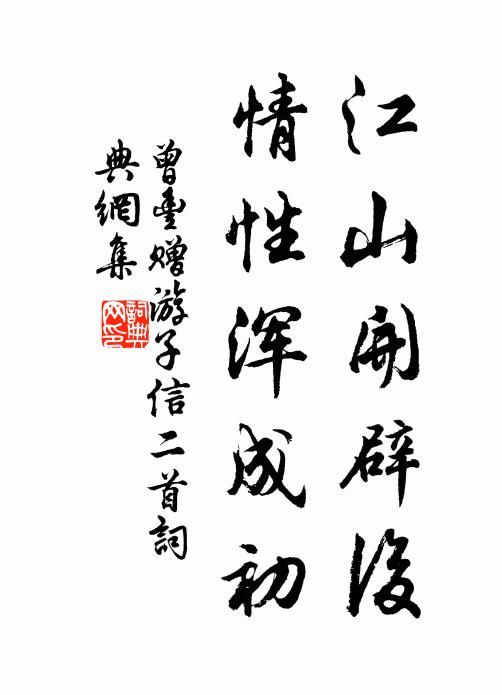 江山開辟後
情性渾成初
曾豐贈游子信二首詞
典網集
詞典
网印